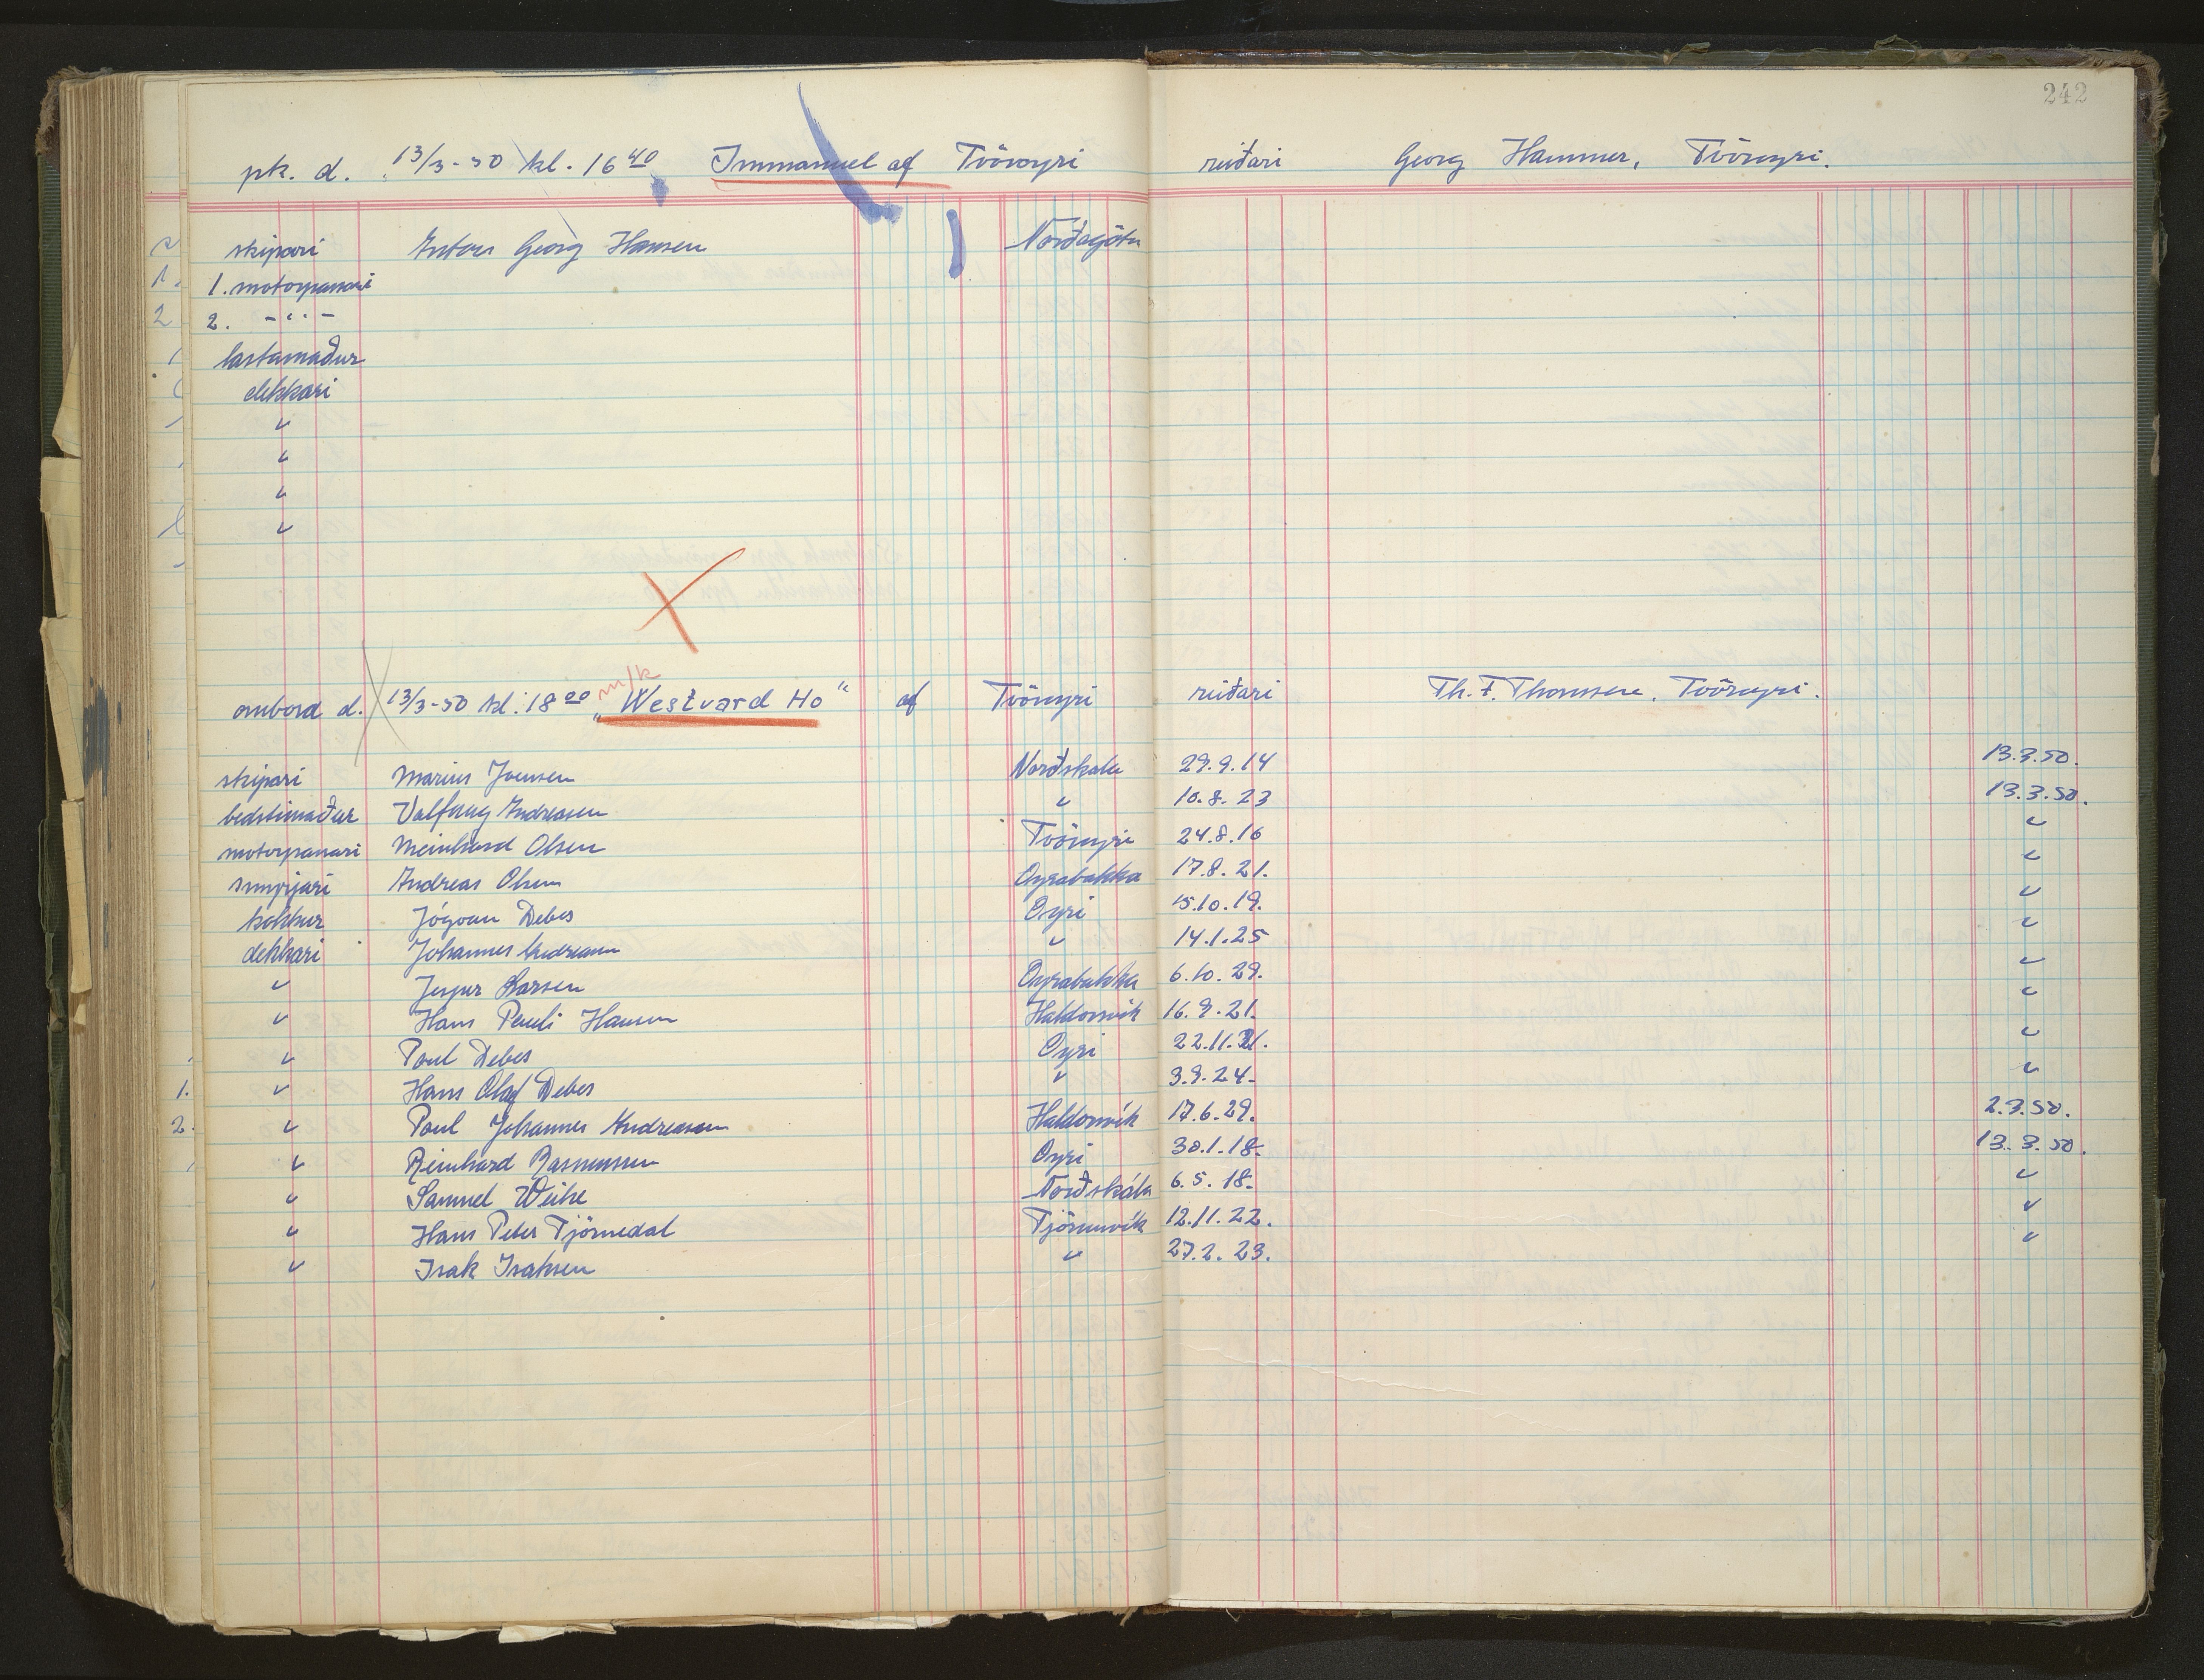 242
pk. d. 13/3-50 kl. 16 40 Immanuel af Tvöroyri reiðari Georg Hammer, Tvöroyri.
skipari Anton Georg Hansen Norðagöta
1. motorpassari
2. -"-
lastamaður
dekkari
"
"
"
"
m/k
ombord d. 13/3-50 kl. 18 00 "Westvard Ho" af Tvöroyri reiðari Th. F. Thomsen, Tvöroyri.
skipari Marius Joensen Norðskála 29.9.14 13.3.50.
bedstimaður Valfrug Andreasen " 10.8.23 13.3.50.
motorpassari Meinhard Olsen Tvöroyri 24.8.16 "
smyrjari Andreas Olsen Oyrabakka 17.8.21. "
kokkur Jógvan Debes Oyri 15.10.19. "
dekkari Johannes Andreasen " 14.1.25 "
" Jespur Larsen Oyrabakka 6.10.29. "
" Hans Pauli Hansen Haldorsvík 16.9.21. "
" Poul Debes Oyri 22.11.21. "
" Hans Olaf Debes " 3.9.24. "
" Poul Johannes Andreasen Haldorsvík 17.6.29. 2.3.50.
" Reinhard Rasmussen Oyri 30.1.18. 13.3.50.
" Samuel Weihe Norðskála 6.5.18. "
" Hans Peter Tjörnedal Tjörnuvík 12.11.22. "
" Isak Isaksen " 27.2.23. "